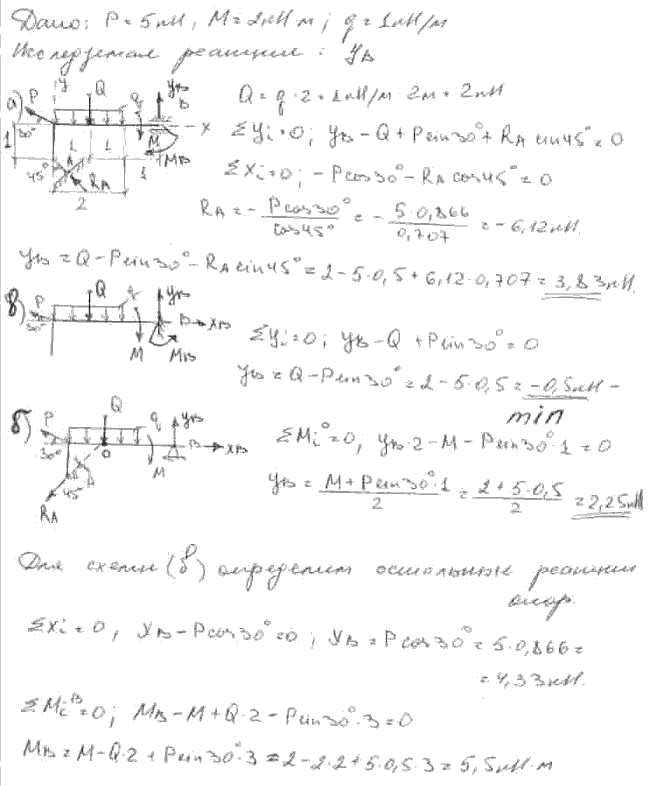 Дано: P = 5 кН, M = 2 кН м; q = 1 кН/м
Исследуемая реакция: YB
а) P y Q q YB B x
Q = q · 2 = 1кН/м · 2м = 2кН
30° 1 1 M MB
ΣYi = 0; YB - Q + P sin30° + RA sin45° = 0
45° A RA 1 2
ΣXi = 0; -P cos30° - RA cos45° = 0
RA = - P cos30° / cos45° = - 5·0,866 / 0,707 = -6,12кН.
YB = Q - P sin30° - RA sin45° = 2 - 5·0,5 + 6,12·0,707 = 3,83кН.
в) P Q q YB B XB
30° M MB
ΣYi = 0; YB - Q + P sin30° = 0
YB = Q - P sin30° = 2 - 5·0,5 = -0,5кН -
min
б) P Q q YB B XB
30° O M
ΣMi° = 0, YB·2 - M - P sin30°·1 = 0
45° RA
YB = M + P sin30°·1 / 2 = 2 + 5·0,5 / 2 = 2,25кН
Для схемы (в) определим остальные реакции
опор.
ΣXi = 0, XB - P cos30° = 0; XB = P cos30° = 5·0,866 =
= 4,33кН.
ΣMiB = 0; MB - M + Q·2 - P sin30°·3 = 0
MB = M - Q·2 + P sin30°·3 = 2 - 2·2 + 5·0,5·3 = 5,5кН·м